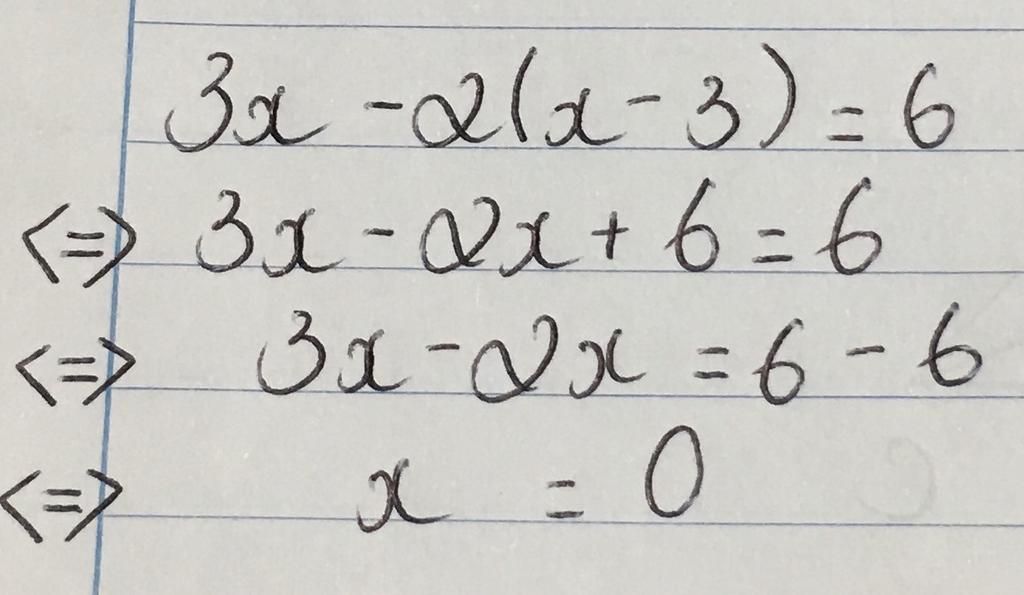 3x - 2(x - 3) = 6
<=> 3x - 2x + 6 = 6
<=> 3x - 2x = 6 - 6
<=> x = 0